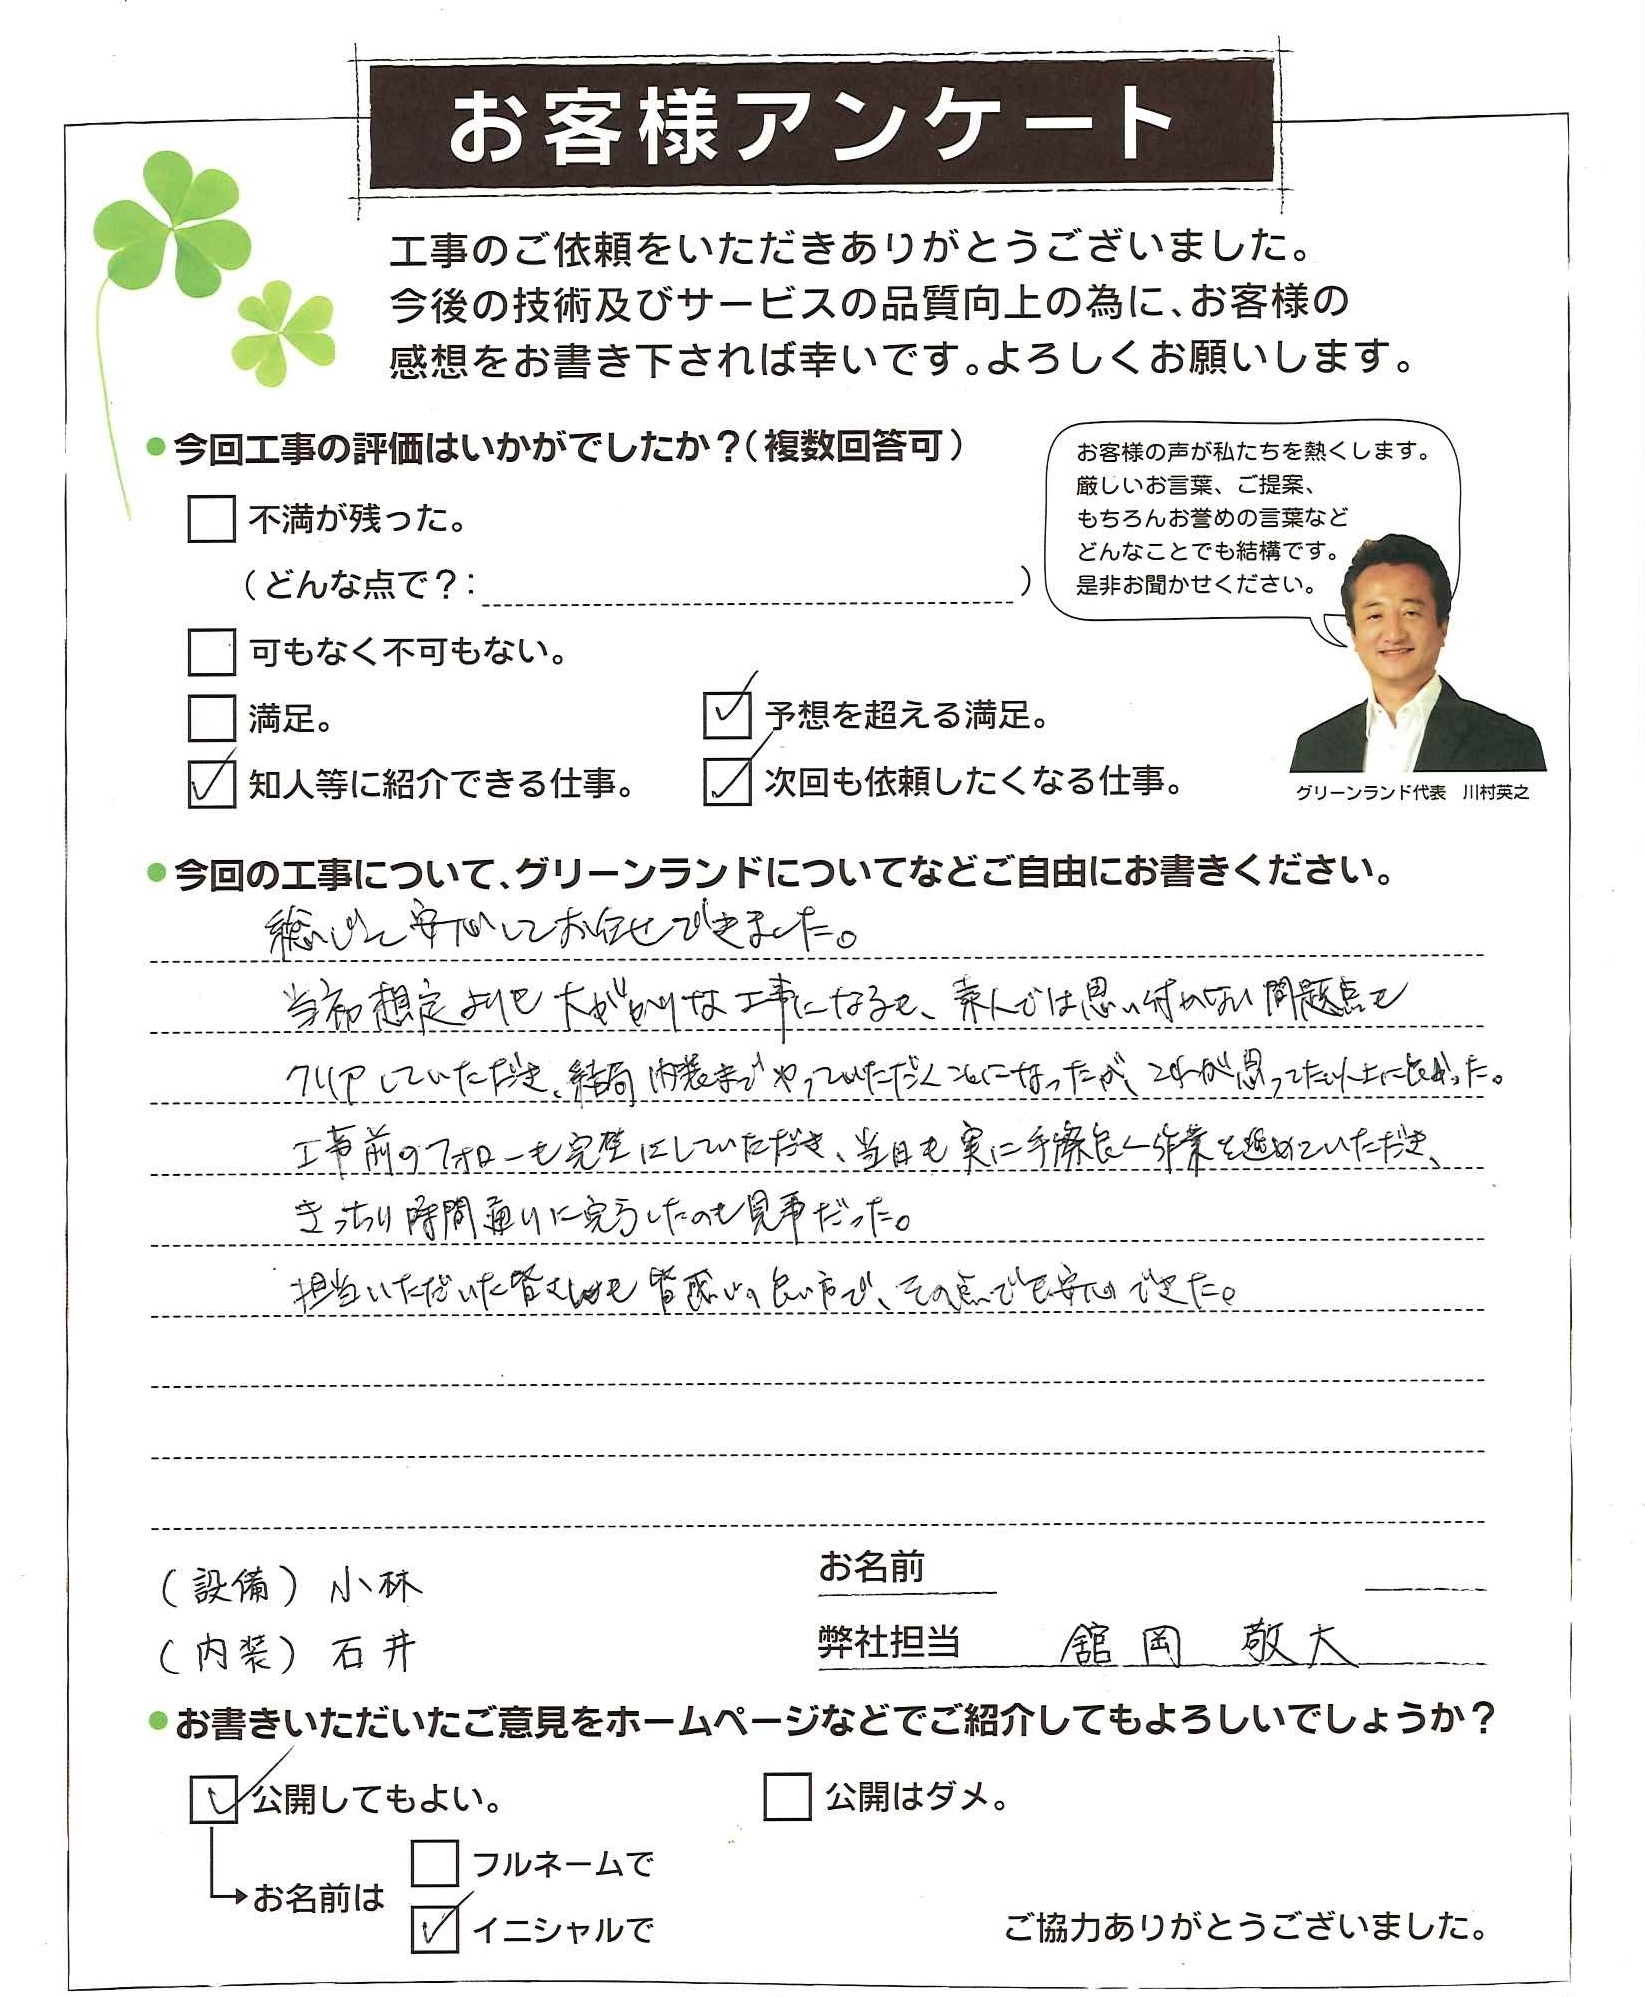 お客様アンケート
工事のご依頼をいただきありがとうございました。
今後の技術及びサービスの品質向上の為に、お客様の
感想をお書き下されば幸いです。よろしくお願いします。
●今回工事の評価はいかがでしたか？（複数回答可）
不満が残った。
（どんな点で？：　）
可もなく不可もない。
満足。
予想を超える満足。
知人等に紹介できる仕事。
次回も依頼したくなる仕事。
お客様の声が私たちを熱くします。
厳しいお言葉、ご提案、
もちろんお誉めの言葉など
どんなことでも結構です。
是非お聞かせください。
グリーンランド代表　川村英之
●今回の工事について、グリーンランドについてなどご自由にお書きください。
総じて安心してお任せできました。
当初想定よりも大がかりな工事になるも、素人では思い付かない問題点も
クリアしていただき、結局内装までやっていただくことになったが、これが思ってた以上に良かった。
工事前のフォローも完璧にしていただき、当日も実に手際良く作業を進めていただき、
きっちり時間通りに完了したのも見事だった。
担当いただいた皆さんも皆感じの良い方で、その点でも安心できた。
（設備）小林
（内装）石井
お名前
弊社担当　舘岡　敬大
●お書きいただいたご意見をホームページなどでご紹介してもよろしいでしょうか？
公開してもよい。
公開はダメ。
お名前は
フルネームで
イニシャルで
ご協力ありがとうございました。